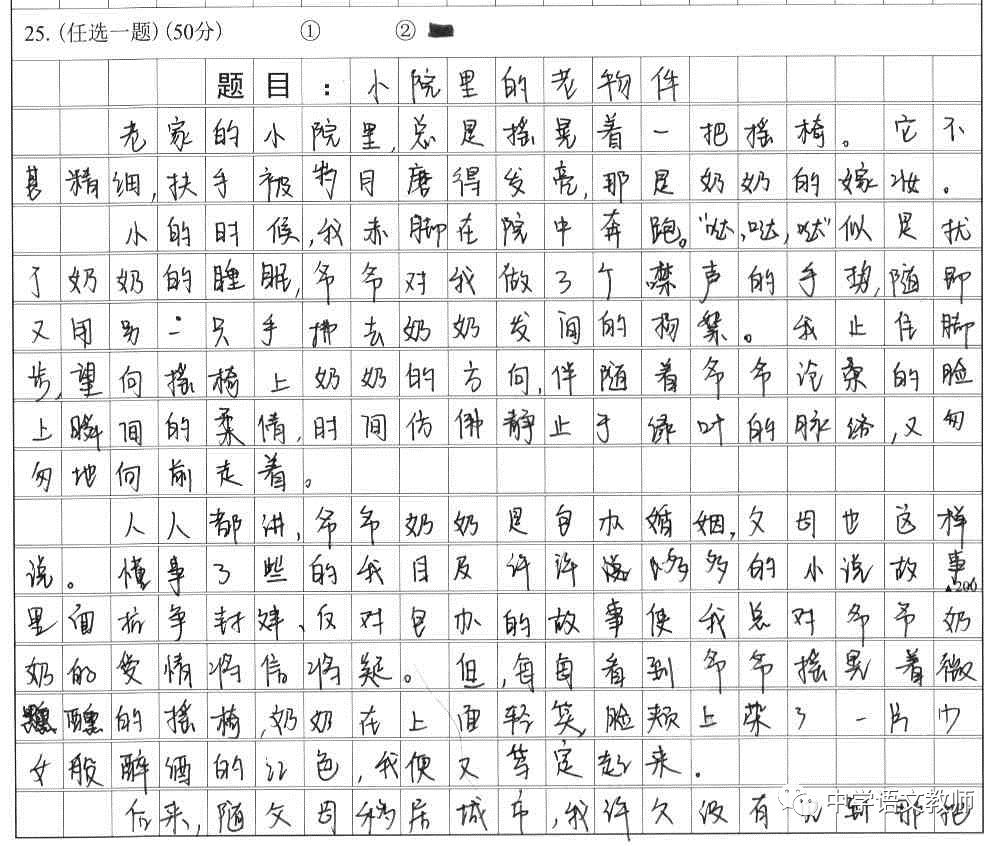 25.(任选一题)(50分) ① ②
题目:小院里的老物件
老家的小院里,总是摇晃着一把摇椅。它不
甚精细,扶手被岁月磨得发亮,那是奶奶的嫁妆。
小的时候,我赤脚在院中奔跑。“哒,哒,哒”似是扰
了奶奶的睡眠,爷爷对我做了个禁声的手势,随即
又用另一只手拂去奶奶发间的枸絮。我止住脚
步,望向摇椅上奶奶的方向,伴随着爷爷沧桑的脸
上瞬间的柔情,时间仿佛静止于绿叶的脉络,又匆
匆地向前走着。
人人都讲,爷爷奶奶是包办婚姻,父母也这样
说。懂事了些的我目及许许多多的小说故事
▲200
里面抗争封建、反对包办的故事便我总对爷爷奶
奶的爱情将信将疑。但,每每看到爷爷摇晃着微
醺的摇椅,奶奶在上面轻笑,脸颊上染了一片少
女般醉酒的红色,我便又笃定起来。
后来,随父母移居城市,我许久没有 到那把
中学语文教师